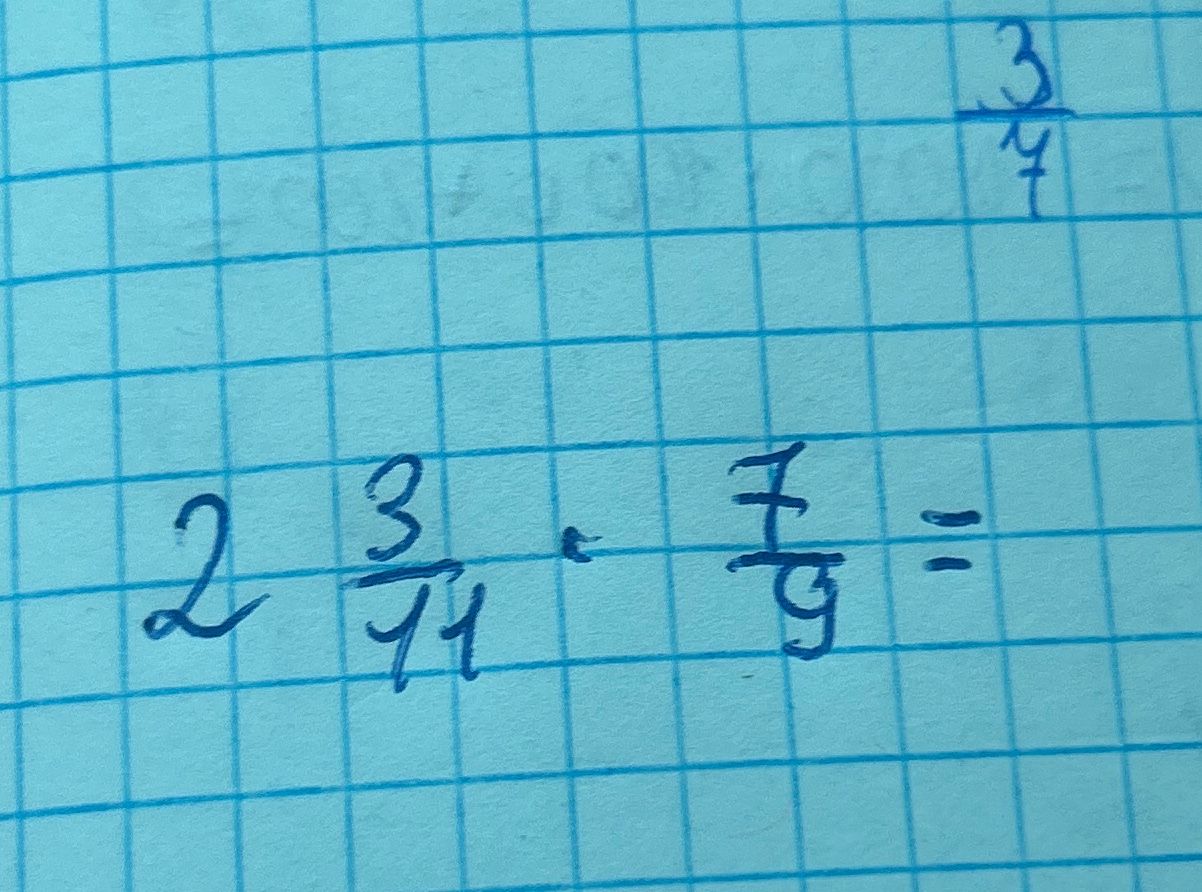 3/4
2 3/11 · 7/9 =